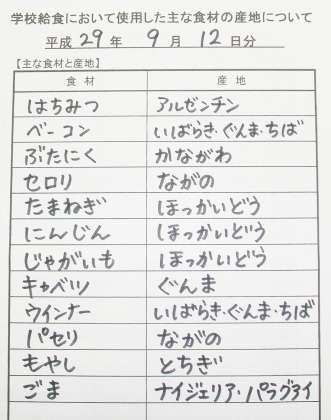 学校給食において使用した主な食材の産地について
平成 29 年 9 月 12 日分
【主な食材と産地】
食材 産地
はちみつ アルゼンチン
ベーコン いばらき・ぐんま・ちば
ぶたにく かながわ
セロリ ながの
たまねぎ ほっかいどう
にんじん ほっかいどう
じゃがいも ほっかいどう
キャベツ ぐんま
ウインナー いばらき・ぐんま・ちば
パセリ ながの
もやし とちぎ
ごま ナイジェリア・パラグアイ